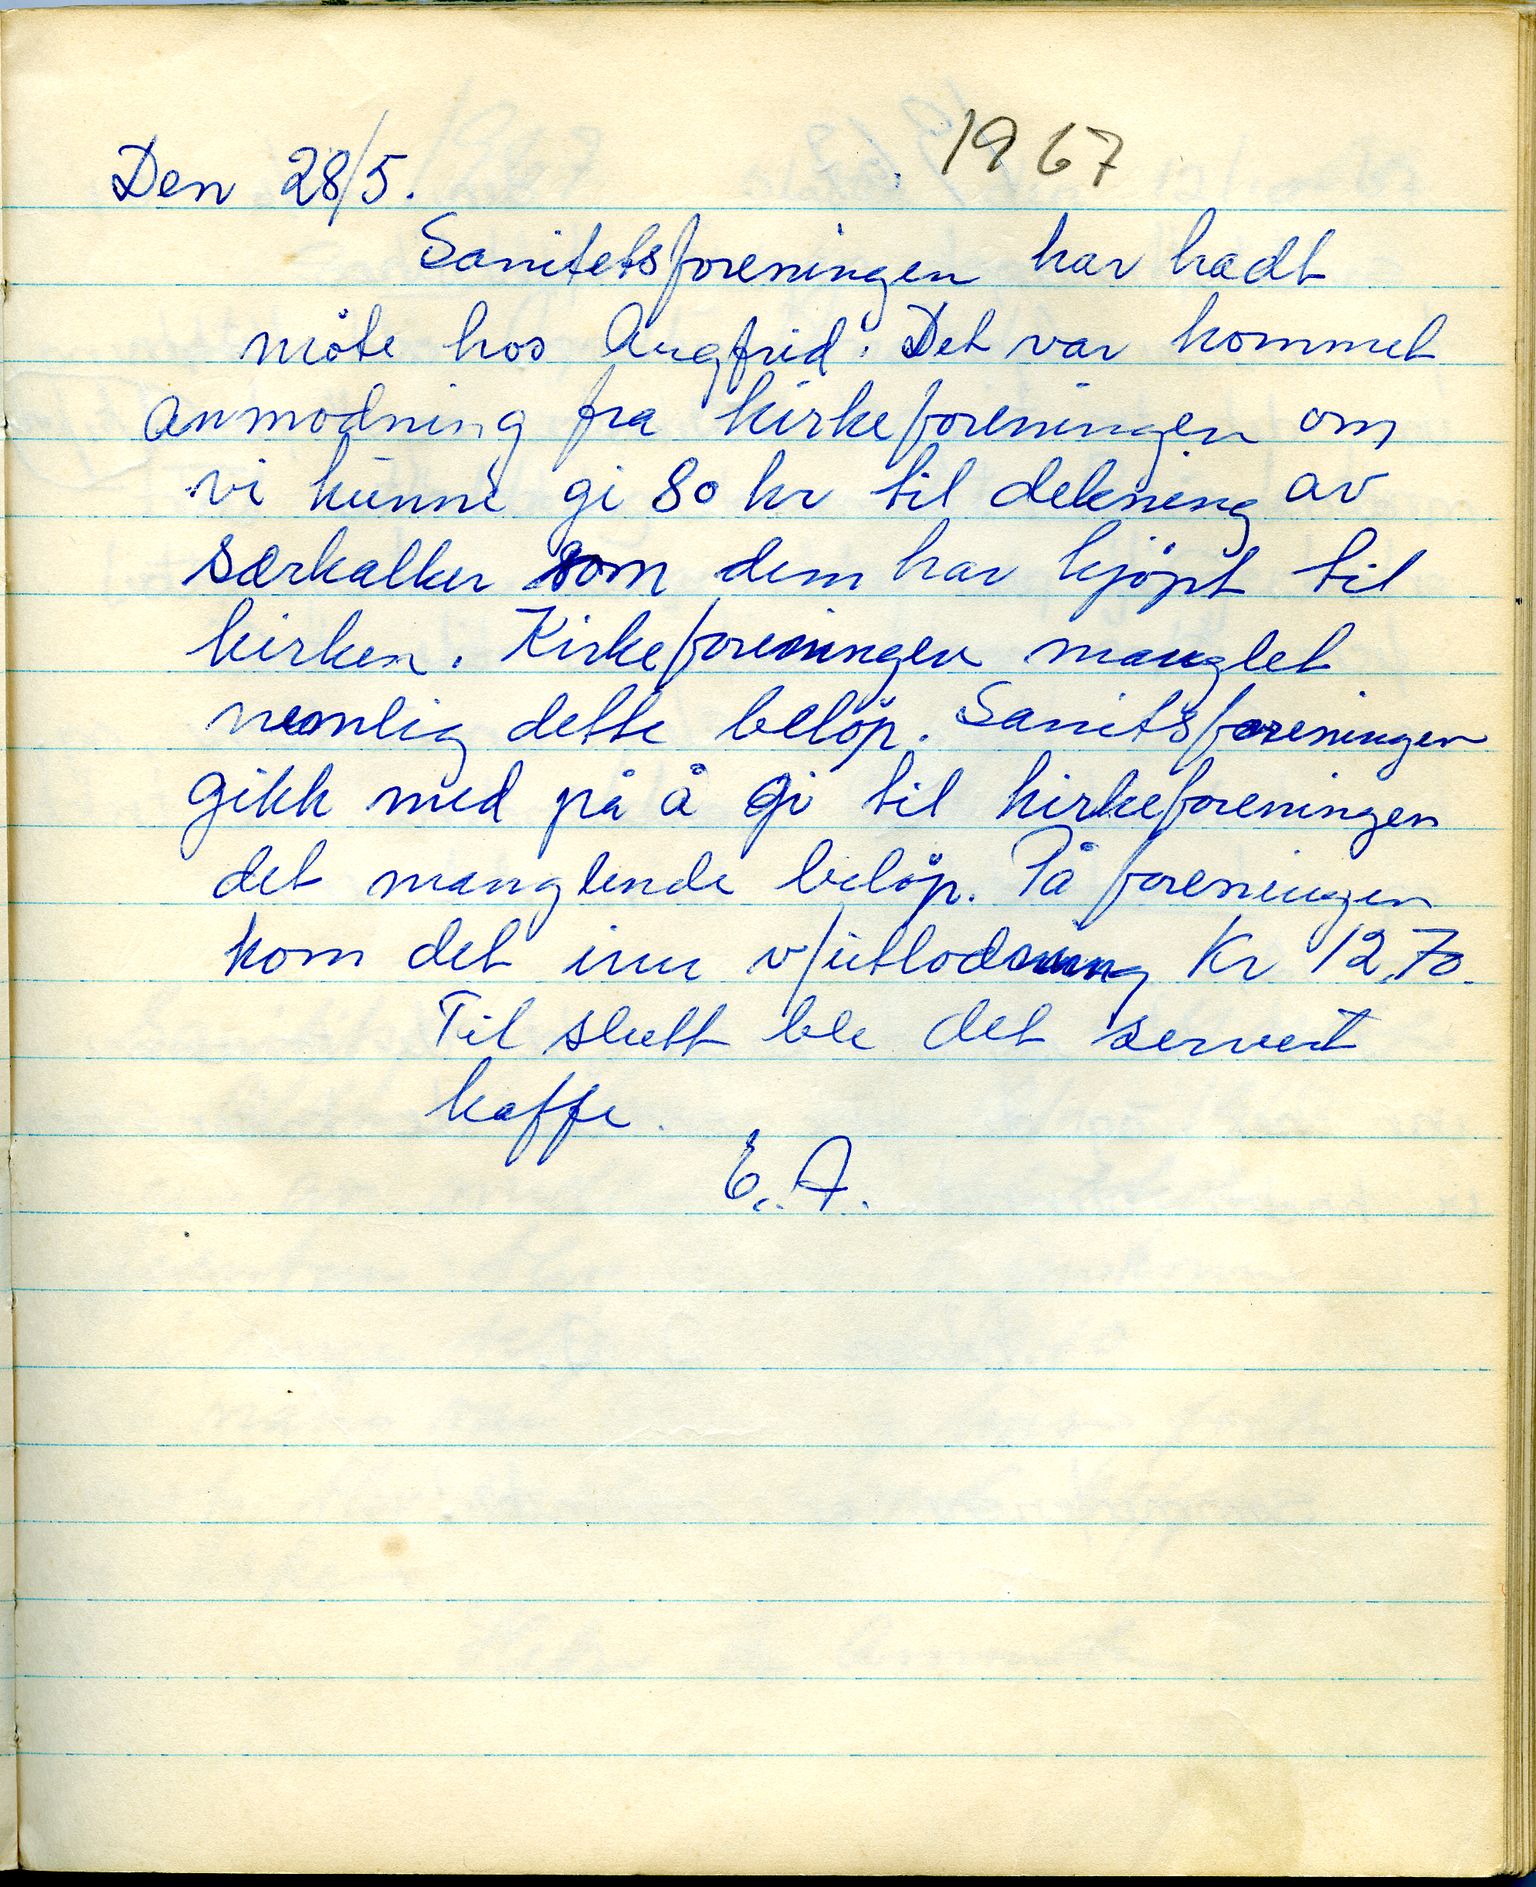 1967
Den 28/5.
Sanitetsforeningen har hadt
möte hos Angfrid. Det var kommet
anmodning fra kirkeforeningen om
vi kunne gi 80 kr til dekning av
særkalker som dem har kjöpt til
kirken. Kirkeforeningen manglet
nemlig dette belöp. Sanitsforeningen
gikk med på å gi til kirkeforeningen
det manglende belöp. På foreningen
kom det inn v/utlodning Kr 12,70.
Til slutt ble det servert
kaffe.
E. A.